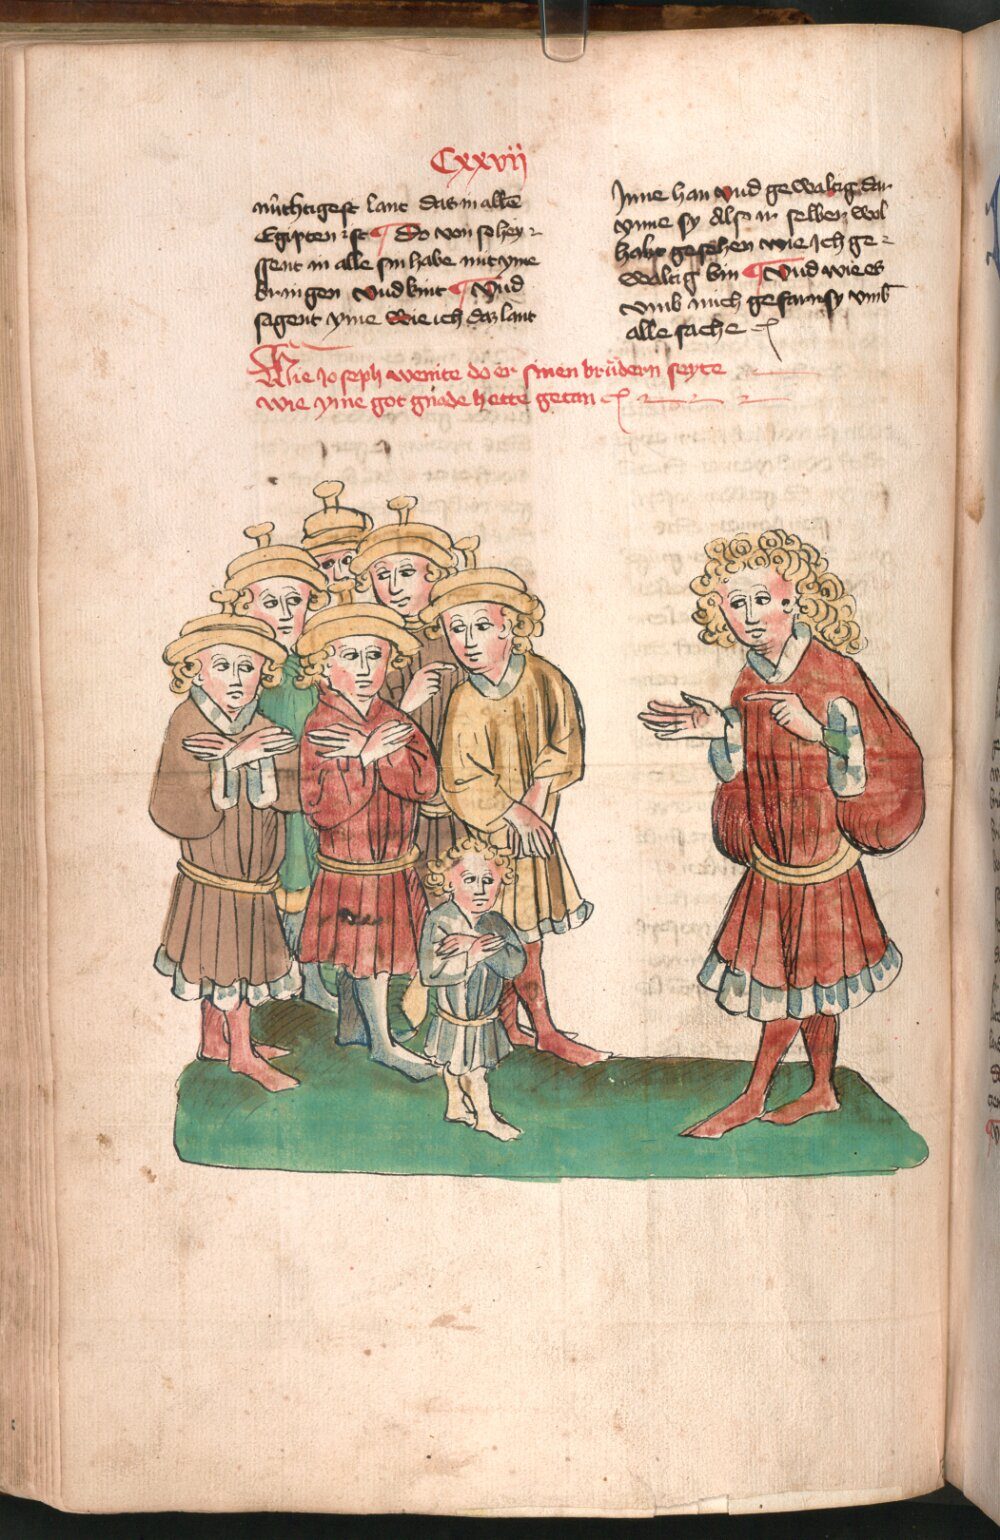 Cxxvii
nüchtigest lant das in allē
Egipten ist Do von so hey-
ssent in alle sin habe mit yme
bringen vnd kint Vnd
sagent yme wie ich daz lant
Jnne han vnd gewaltig dar
ynne sy Also ir selber wol
habt gesehen wie ich ge-
waltig bin Vnd wie es
vmb mich gefarn sy vmb
alle sache
Wie Joseph wenite do er sinen brüdern seyte
wie yme got gnade hette getan